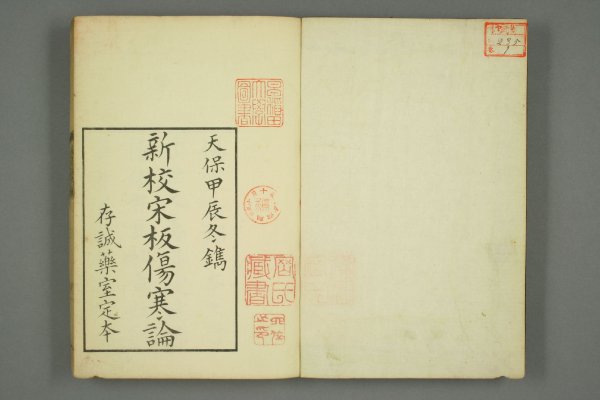 天保甲辰冬鐫
新校宋板傷寒論
存誠藥室定本
藏書